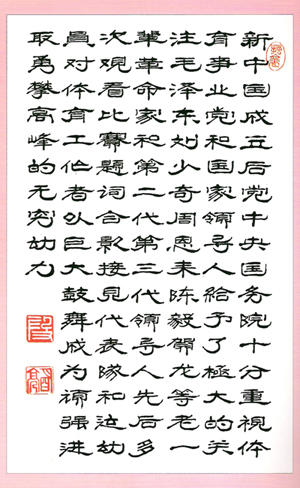 新中国成立后党中央国务院十分重视体
育事业党和国家领导人给予了極大的关
注毛泽东刘少奇周恩来陈毅贺龙等老一
辈革命家和第二代第三代领导人先后多
次观看比赛题词合影接见代表队和运动
员对体育工作者以巨大鼓舞成为顽强进
取勇攀高峰的无穷动力